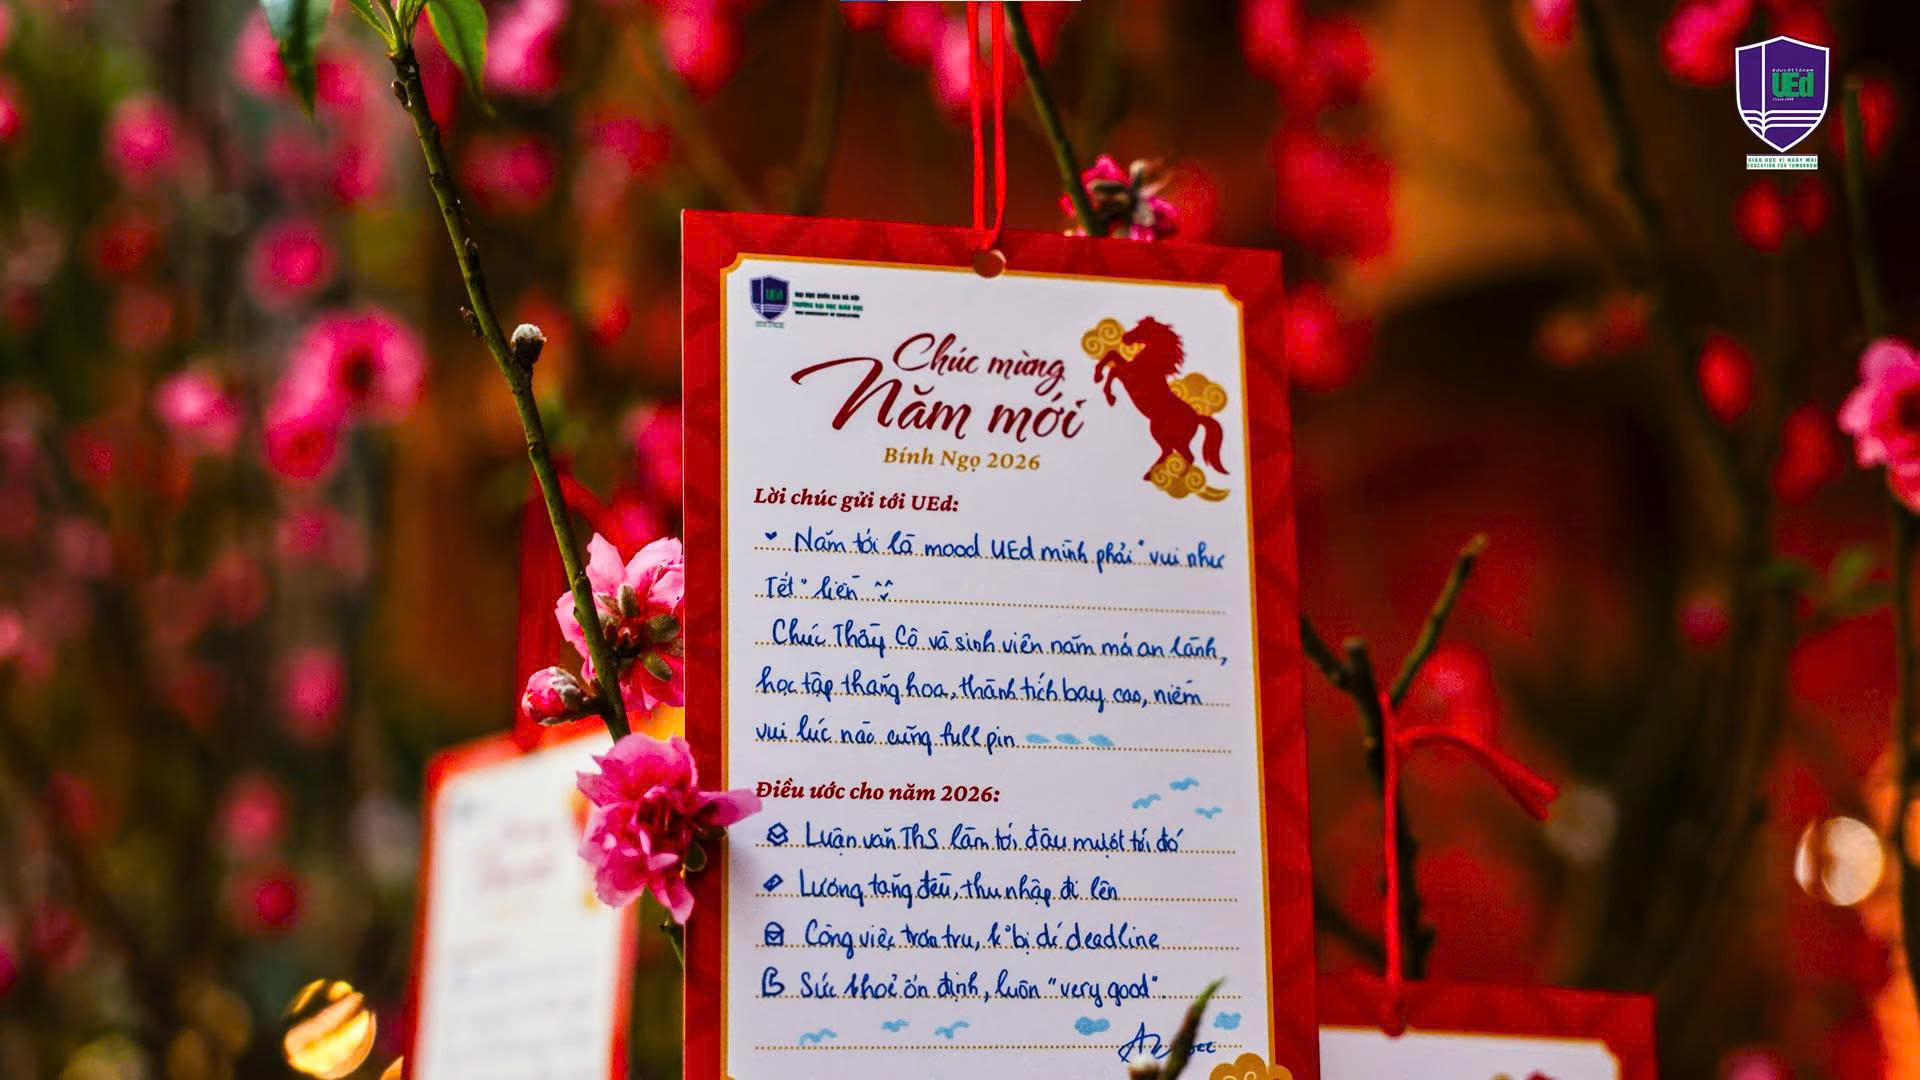 UEd
GIÁO DỤC VÌ NGÀY MAI
EDUCATION FOR TOMORROW
UEd
ĐẠI HỌC QUỐC GIA HÀ NỘI
TRƯỜNG ĐẠI HỌC GIÁO DỤC
VNU UNIVERSITY OF EDUCATION
Chúc mừng
Năm mới
Bính Ngọ 2026
Lời chúc gửi tới UEd:
Năm tới là mood UEd mình phải "vui như
Tết" liền ^^
Chúc Thầy Cô và sinh viên năm mới an lành,
học tập thăng hoa, thành tích bay cao, niềm
vui lúc nào cũng full pin
Điều ước cho năm 2026:
Luận văn ThS làm tới đâu mượt tới đó
Lương tăng đều, thu nhập đi lên
Công việc trơn tru, k° bị dí deadline
Sức khoẻ ổn định, luôn "very good".